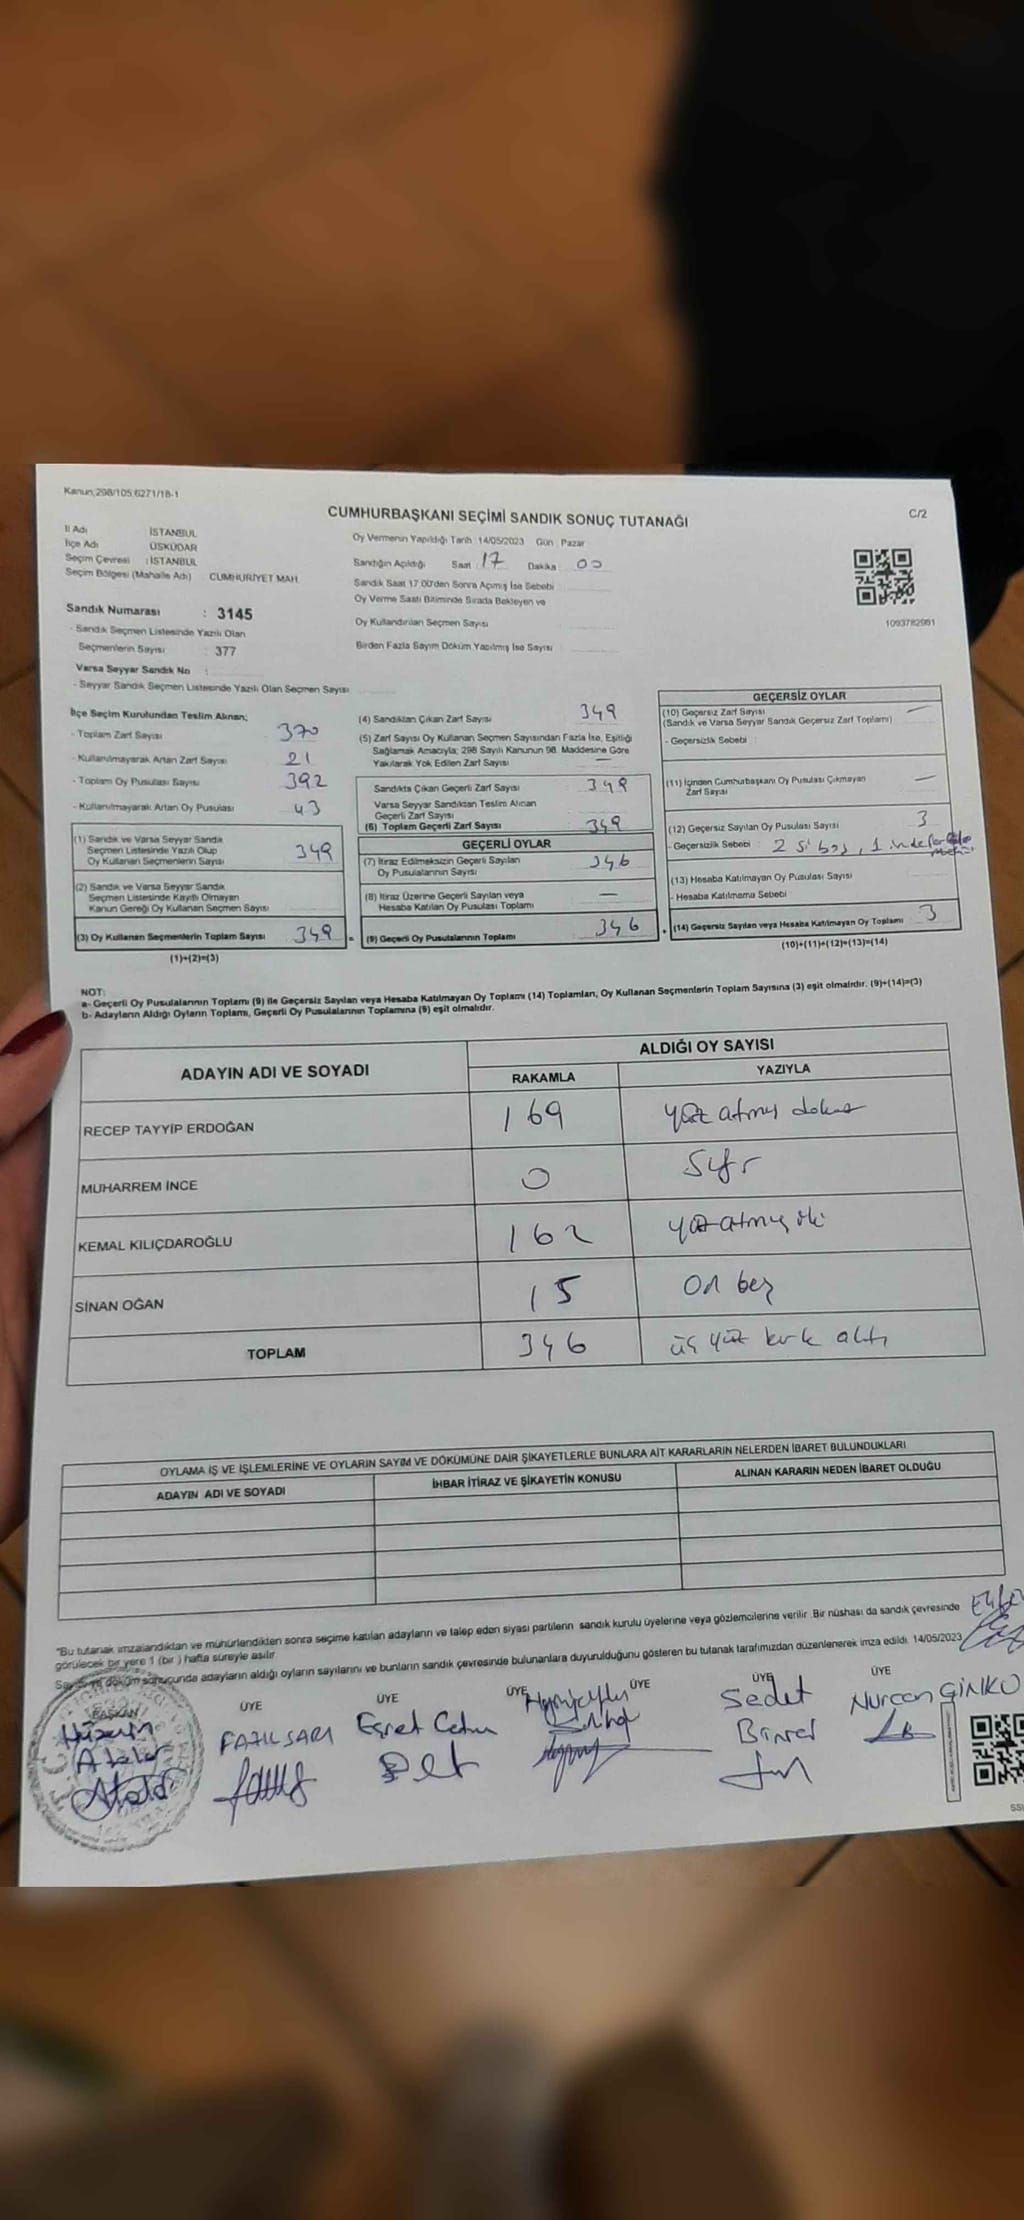 Kanun;298/105;6271/18-1
C/2
CUMHURBAŞKANI SEÇİMİ SANDIK SONUÇ TUTANAĞI
İl Adı İSTANBUL
İlçe Adı ÜSKÜDAR
Seçim Çevresi : İSTANBUL
Seçim Bölgesi (Mahalle Adı) CUMHURİYET MAH.
Sandık Numarası : 3145
- Sandık Seçmen Listesinde Yazılı Olan
Seçmenlerin Sayısı : 377
Varsa Seyyar Sandık No
- Seyyar Sandık Seçmen Listesinde Yazılı Olan Seçmen Sayısı
Oy Vermenin Yapıldığı Tarih :14/05/2023 Gün : Pazar
Sandığın Açıldığı Saat : 17 Dakika : 00
Sandık Saat 17.00'den Sonra Açımış İse Sebebi
Oy Verme Saati Bitiminde Sırada Bekleyen ve
Oy Kullandırılan Seçmen Sayısı
Birden Fazla Sayım Döküm Yapılmış İse Sayısı
1093782981
İlçe Seçim Kurulundan Teslim Alınan;
- Toplam Zarf Sayısı 370
- Kullanılmayarak Artan Zarf Sayısı 21
- Toplam Oy Pusulası Sayısı 392
- Kullanılmayarak Artan Oy Pusulası 43
(1) Sandık ve Varsa Seyyar Sandık
Seçmen Listesinde Yazılı Olup
Oy Kullanan Seçmenlerin Sayısı 349
(2) Sandık ve Varsa Seyyar Sandık
Seçmen Listesinde Kayıtlı Olmayan
Kanun Gereği Oy Kullanan Seçmen Sayısı
(3) Oy Kullanan Seçmenlerin Toplam Sayısı 349
(1)+(2)=(3)
(4) Sandıktan Çıkan Zarf Sayısı 349
(5) Zarf Sayısı Oy Kullanan Seçmen Sayısından Fazla İse, Eşitliği
Sağlamak Amacıyla; 298 Sayılı Kanunun 98. Maddesine Göre
Yakılarak Yok Edilen Zarf Sayısı —
Sandıkta Çıkan Geçerli Zarf Sayısı 349
Varsa Seyyar Sandıktan Teslim Alınan
Geçerli Zarf Sayısı
(6) Toplam Geçerli Zarf Sayısı 349
GEÇERLİ OYLAR
(7) İtiraz Edilmeksizin Geçerli Sayılan
Oy Pusulalarının Sayısı 346
(8) İtiraz Üzerine Geçerli Sayılan veya
Hesaba Katılan Oy Pusulası Toplamı —
(9) Geçerli Oy Pusulalarının Toplamı 346
GEÇERSİZ OYLAR
(10) Geçersiz Zarf Sayısı —
(Sandık ve Varsa Seyyar Sandık Geçersiz Zarf Toplamı)
- Geçersizlik Sebebi :
(11) İçinden Cumhurbaşkanı Oy Pusulası Çıkmayan
Zarf Sayısı —
(12) Geçersiz Sayılan Oy Pusulası Sayısı 3
- Geçersizlik Sebebi : 2 si boş, 1
(13) Hesaba Katılmayan Oy Pusulası Sayısı
- Hesaba Katılmama Sebebi
(14) Geçersiz Sayılan veya Hesaba Katılmayan Oy Toplamı 3
(10)+(11)+(12)+(13)=(14)
NOT:
a- Geçerli Oy Pusulalarının Toplamı (9) ile Geçersiz Sayılan veya Hesaba Katılmayan Oy Toplamı (14) Toplamları, Oy Kullanan Seçmenlerin Toplam Sayısına (3) eşit olmalıdır. (9)+(14)=(3)
b- Adayların Aldığı Oyların Toplamı, Geçerli Oy Pusulalarının Toplamına (9) eşit olmalıdır.
ADAYIN ADI VE SOYADI ALDIĞI OY SAYISI
RAKAMLA YAZIYLA
RECEP TAYYİP ERDOĞAN 169 yüz atmış dokuz
MUHARREM İNCE 0 Sıfır
KEMAL KILIÇDAROĞLU 162 yüz atmış iki
SİNAN OĞAN 15 On beş
TOPLAM 346 üç yüz kırk altı
OYLAMA İŞ VE İŞLEMLERİNE VE OYLARIN SAYIM VE DÖKÜMÜNE DAİR ŞİKAYETLERLE BUNLARA AİT KARARLARIN NELERDEN İBARET BULUNDUKLARI
ADAYIN ADI VE SOYADI İHBAR İTİRAZ VE ŞİKAYETİN KONUSU ALINAN KARARIN NEDEN İBARET OLDUĞU
"Bu tutanak imzalandıktan ve mühürlendikten sonra seçime katılan adayların ve talep eden siyasi partilerin sandık kurulu üyelerine veya gözlemcilerine verilir. Bir nüshası da sandık çevresinde
görülecek bir yere 1 (bir) hafta süreyle asılır.
Sayım ve döküm sonucunda adayların aldığı oyların sayılarını ve bunların sandık çevresinde bulunanlara duyurulduğunu gösteren bu tutanak tarafımızdan düzenlenerek imza edildi. 14/05/2023
BAŞKAN ÜYE ÜYE ÜYE ÜYE ÜYE ÜYE
Hüseyin FAZIL SARI Esret Sedat Nurcan GİNKO